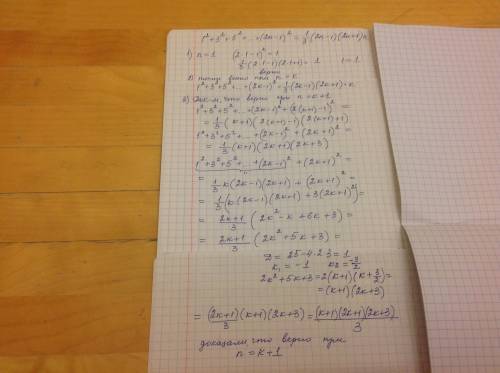 1² + 3² + 5² + ... + (2n-1)² = 1/3 (2n-1)(2n+1)n
1) n = 1 (2·1-1)² = 1
1/3 (2·1-1)(2·1+1) = 1 1 = 1
верно
2) пусть верно при n = k
1² + 3² + 5² + ... + (2k-1)² = 1/3 (2k-1)(2k+1)·k
3) Док-м, что верно при n = k+1
1² + 3² + 5² + ... + (2k-1)² + (2(k+1)-1)² =
= 1/3 (k+1)(2(k+1)-1)(2(k+1)+1)
1² + 3² + 5² + ... + (2k-1)² + (2k+1)² =
= 1/3 (k+1)(2k+1)(2k+3)
1² + 3² + 5² + ... + (2k-1)² + (2k+1)² =
= 1/3 k(2k-1)(2k+1) + (2k+1)² =
= 1/3 (k(2k-1)(2k+1) + 3(2k+1)²) =
= (2k+1)/3 (2k² - k + 6k + 3) =
= (2k+1)/3 (2k² + 5k + 3) =
D = 25 - 4·2·3 = 1
k₁ = -1 k₂ = -3/2
2k² + 5k + 3 = 2(k+1)(k + 3/2) =
= (k+1)(2k+3)
= (2k+1)/3 (k+1)(2k+3) = (k+1)(2k+1)(2k+3)/3
доказали, что верно при
n = k+1